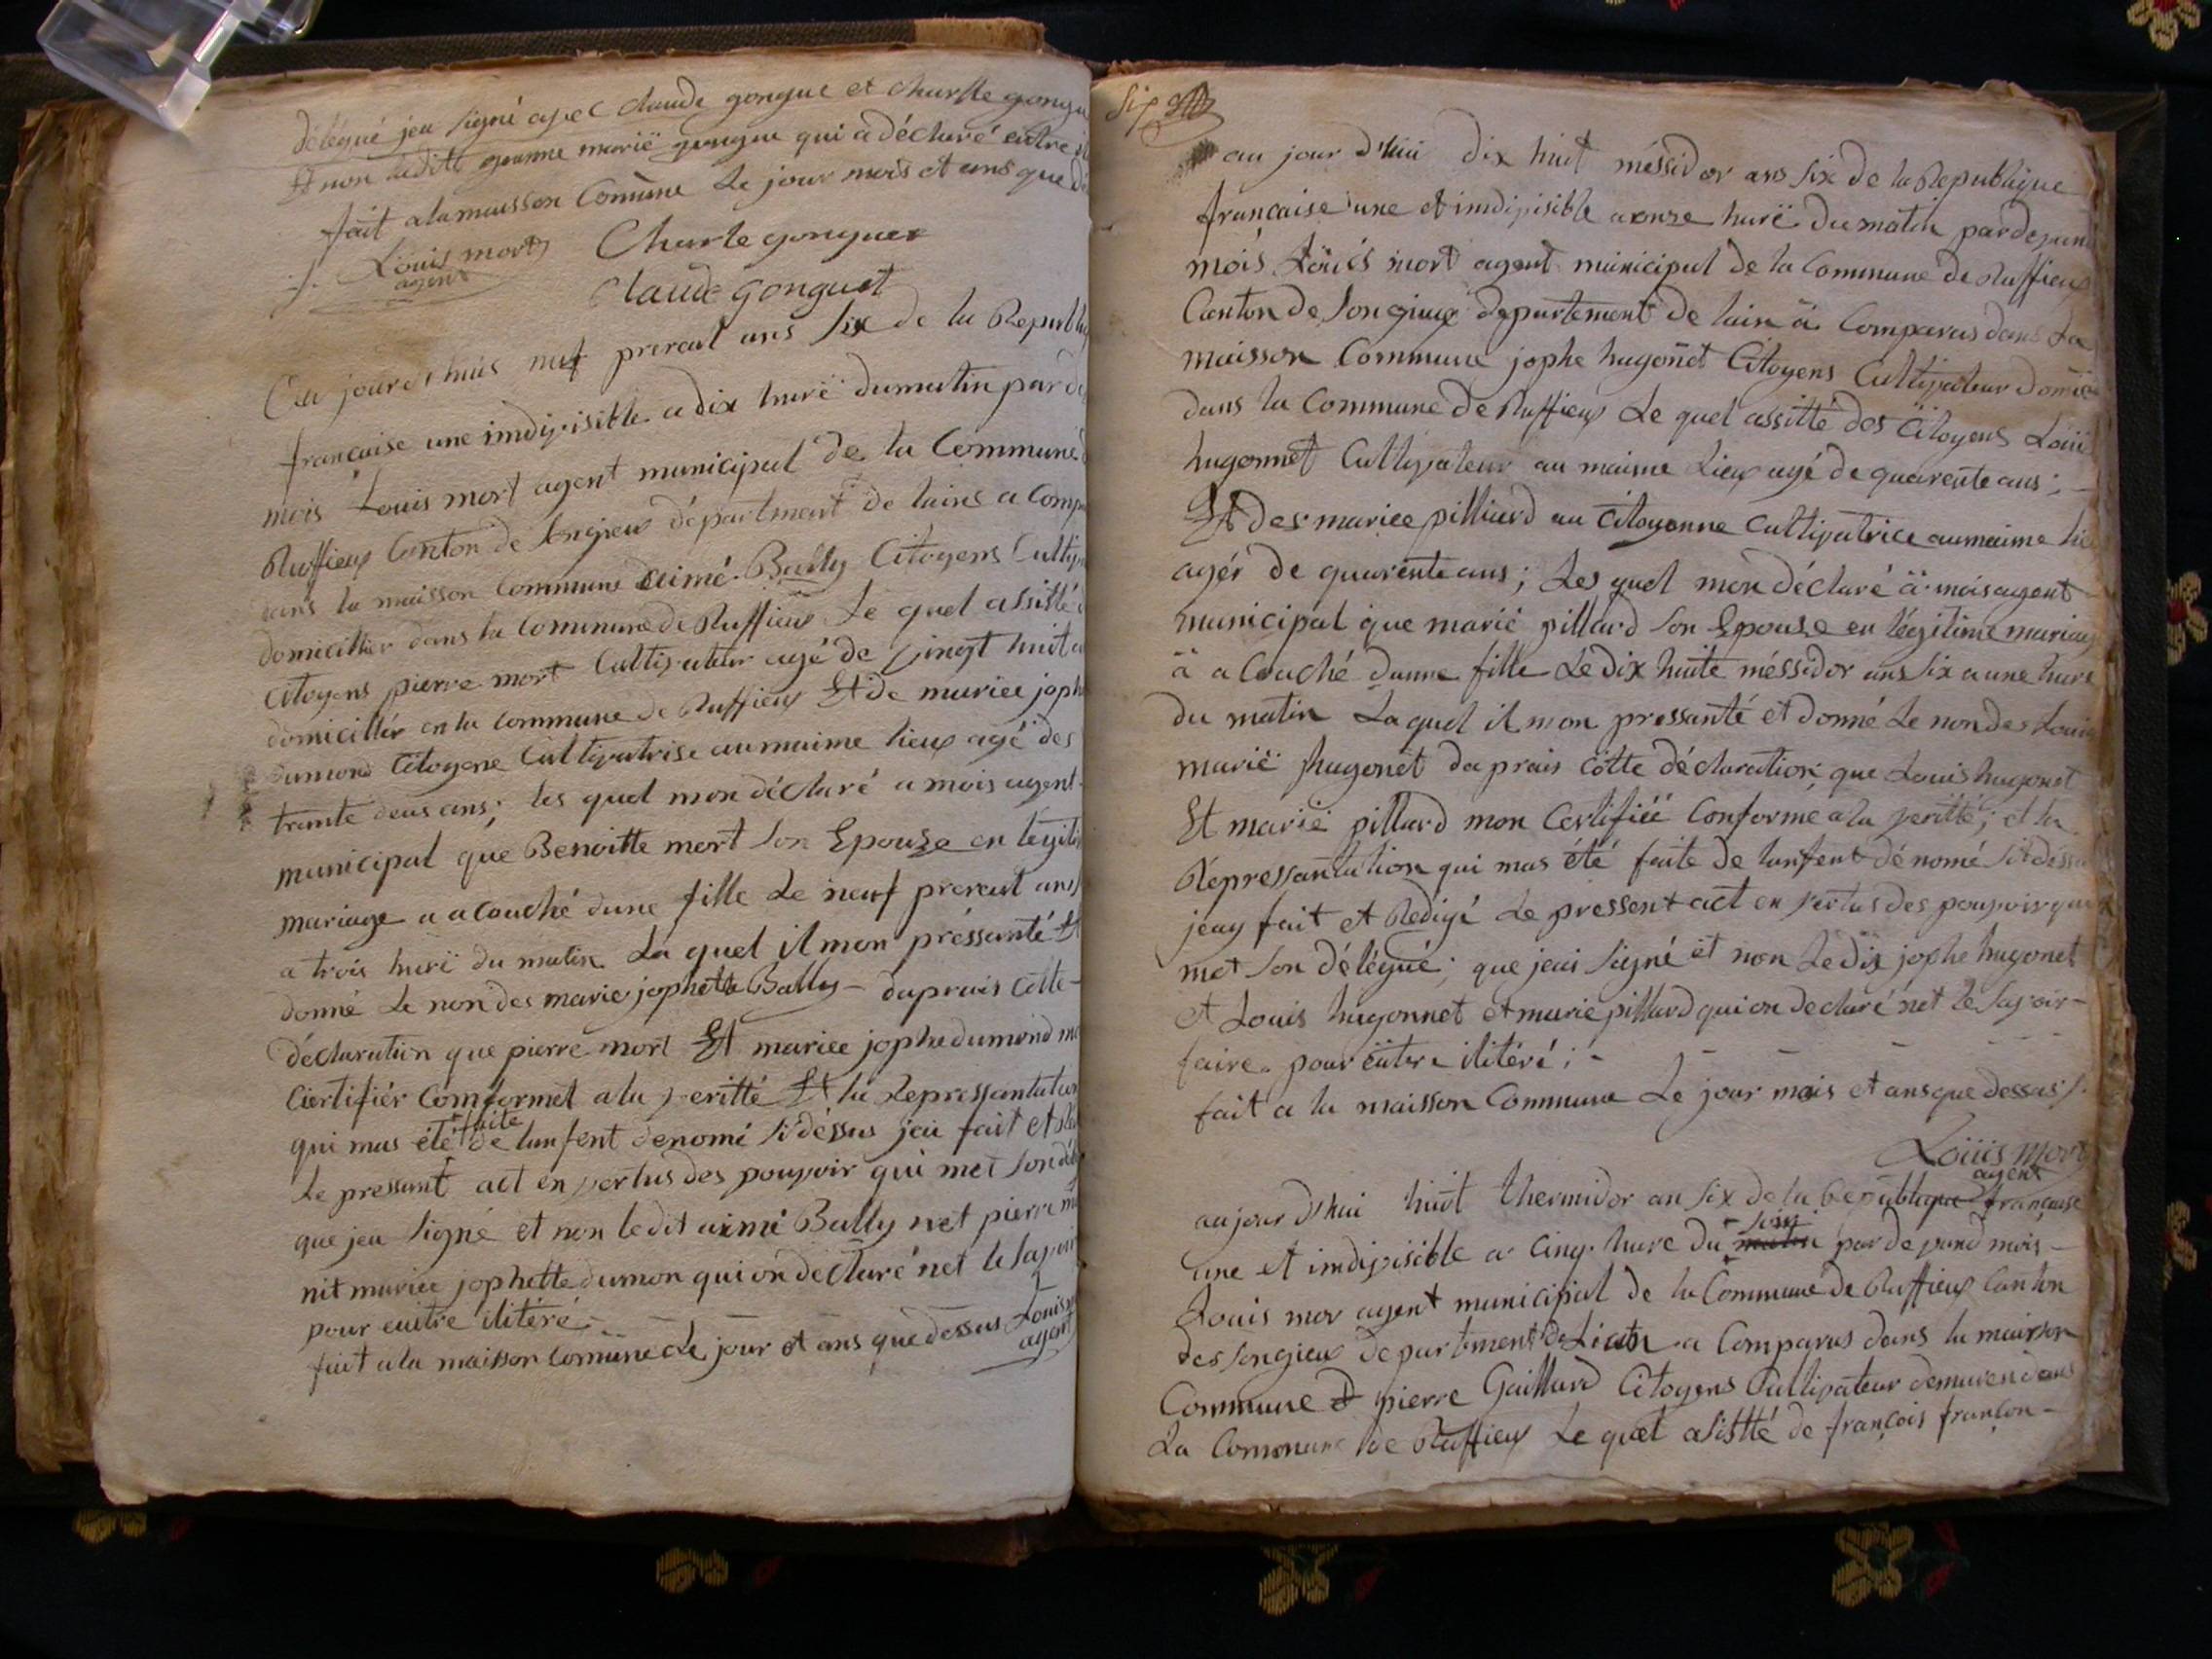 délégué jeu signé avec claude gongue et charlle gongu
Et non laditt geanne marië gongue qui a déclaré entre
fait a la maisson Comùne Le jour mois et ans que de
Louis mort Charle gonguet
agent
Claude gonguet
Cu jourd'huis nuf prereal ans six de la Republi
francaise une imdivisible a dix hurë du matin par de
mois Louis mort agent municipal de la Commune d
Ruffieux Canton de Songieux départment de lains a Comp
dans la maisson Commune aimé Bally Citoyens Cultiv
domicillier dans la Commune de Ruffieux Le quel assisté d
Citoyens pierre mort Cultivateur agé de vingt huit a
domicillér en la Commune de Ruffieux Et de mariee joph
dumond Citoyene Cultivatrise au maime lieux agé des
trante deus ans; les quel mon déclaré a mois agent
municipal que Benoitte mort son Epouze en légiti
mariage a acouché dune fille Le neuf prereal ans
a trois hurë du matin La quel il mon préssanté Et
donné Le non des marie jophette Bally - daprais cette -
déclaration que pierre mort Et mariee jophe dumond mo
Ciertifiér Comformet a la veritté Et la Repressantation
qui mas été faite de lanfent denomé si déssus jeu fait et Re
Le pressant act en vertus des pouvoir qui met son dél
que jeu signé et non le dit aimé Bally net pierre mo
nit mariee jophette dumon qui on déclaré net le savoir
pour euitre ilitéré -
fait a la maisson Comùne Le jour et ans que dessus Louis
agent
Six
au jour d'hui dix huit méssidor ans six de la Republique
francaise une et imdivisible a onze hurë du matin par devand
mois Loüis mort agent municipal de la Commune de Ruffieux
Canton de Songieux departement de lain a Comparus dans La
maisson Commune jophe hugonet Citoyens Cultivateur domic
dans la Commune de Ruffieux Le quel assitté des Citoyens Loui
hugonnet Cultivateur au maime Lieux agé de quarente ans;
Et des mariee pilliard au Citoyenne Cultivatrice au maime lie
agér de quarente ans; Les quel mon déclaré ä mois agent
municipal que marië pillard son Epouze en légitime mariag
ä acouché dunne fille Le dix huite méssidor ans six a une hure
du matin La quel il mon pressanté et donné Le non des Louis
marië hugonet da prais cette déclaration que Louis hugonet
Et marië pillard mon Certifiéé Conforme a la veritté; et la
Répressantation qui mas été faite de lanfent dé nomé si déssu
jeay fait et Redigé Le pressent act en vertus des pouvoir qui
met son délégué; que jeai signé et non Le dix jophe hugonet
et Louis hugonnet et marie pillard qui on declaré net le savoir -
faire pour eütere ilitéré; -
fait a la maisson Commune Le jour mois et ans que dessus
Loüis mort
agent
aujourd'hui huit thermidor an six de la Republique française
une et imdivisible a cinq hure du matin soir par de vand mois -
Louis mor agent municipal de la Commune de Ruffieux Canton
des songieux departement de Liain a Comparus dans la maisson
Commune pierre Gaillard Citoyens Cultivateur demuren dans
La Commune de Ruffieux Le quel asistté de françois françon -